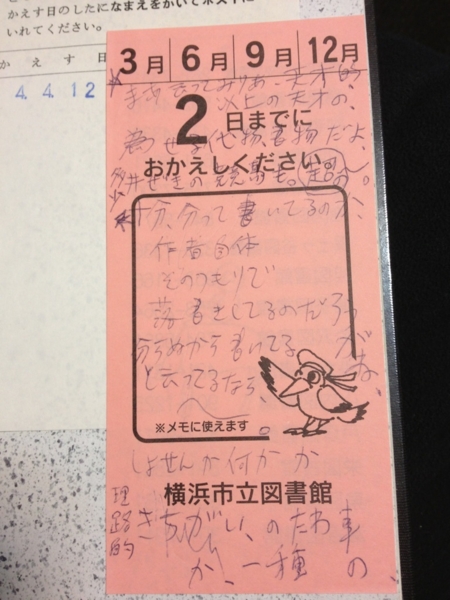 かえす日のしたになまえをかいてポストに
いれてください。
かえす日
4.4.12
3月 6月 9月 12月
天才的、
以上の天才の、
2日までに
代物、書物だよ、
おかえしください。
十分、分って書いてるのが、
作者自体
そのつもりで
落書きしてるのだろう
が、
分らぬから書けてる
と云ってるなら、
へ。
※メモに使えます
しょせんか何かか
横浜市立図書館
理路的
きちがい、のたわ事
か、一種の